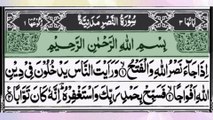 سُوْرَةُ النَّصْرِ مَدَنِيَّةٌ
بِسْمِ اللهِ الرَّحْمٰنِ الرَّحِيْمِ
اِذَا جَآءَ نَصْرُ اللهِ وَالْفَتْحُ وَرَاَيْتَ النَّاسَ يَدْخُلُوْنَ فِيْ دِيْنِ
اللهِ اَفْوَاجًا فَسَبِّحْ بِحَمْدِ رَبِّكَ وَاسْتَغْفِرْهُ اِنَّهٗ كَانَ تَوَّابًا